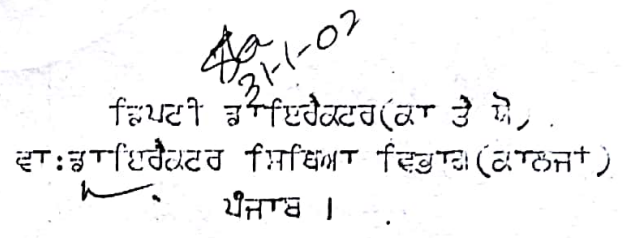 31-1-02
ਡਿਪਟੀ ਡਾਇਰੈਕਟਰ(ਕਾ ਤੇ ਯੋ)
ਵਾ:ਡਾਇਰੈਕਟਰ ਸਿਖਿਆ ਵਿਭਾਗ(ਕਾਲਜਾਂ)
ਪੰਜਾਬ ।